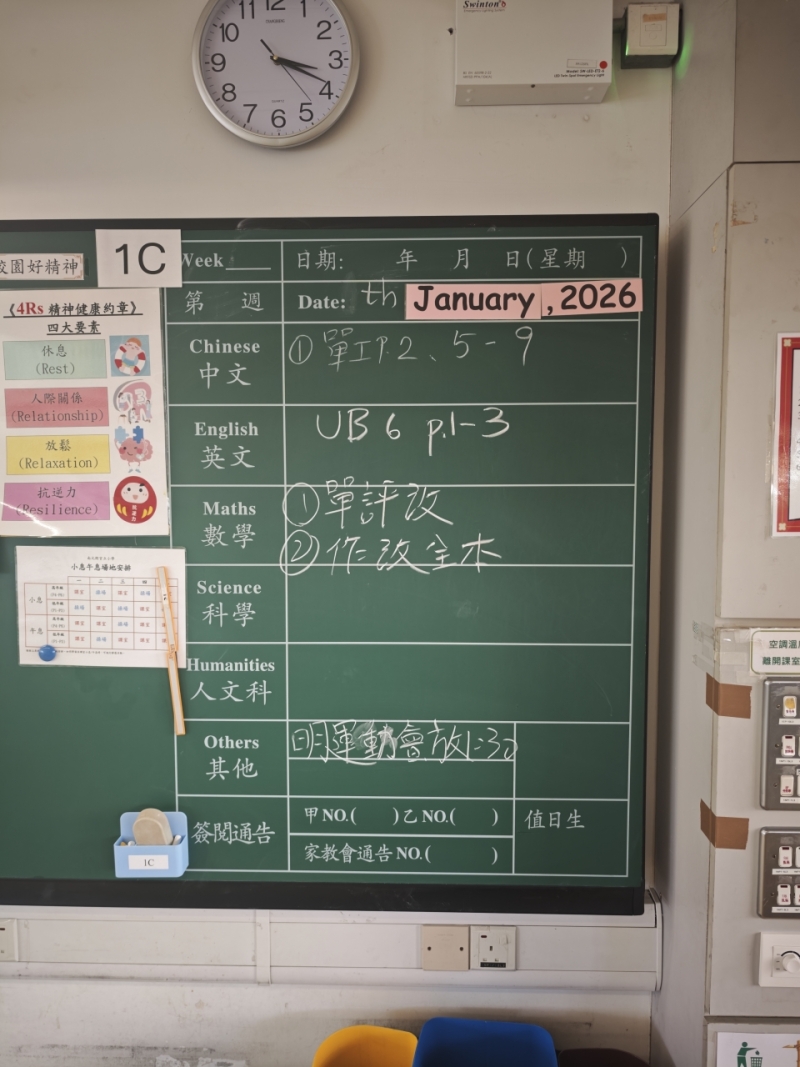 11 12 1
10 2
9 3
8 4
7 6 5
Swinton's
校園好精神
1C
Week
日期: 年 月 日(星期 )
第 週
Date: th January ,2026
《4Rs 精神健康約章》
四大要素
休息
(Rest)
人際關係
(Relationship)
放鬆
(Relaxation)
抗逆力
(Resilience)
Chinese
中文
① 單工P.2、5-9
English
英文
UB 6 p.1-3
Maths
數學
① 單評改
② 作改全本
Science
科學
Humanities
人文科
Others
其他
明運動會放1:30
小息午息場地安排
一 二 三 四
小息
午息
簽閱通告
甲NO.( )乙NO.( )
家教會通告NO.( )
值日生
1C
空調溫
離開課室